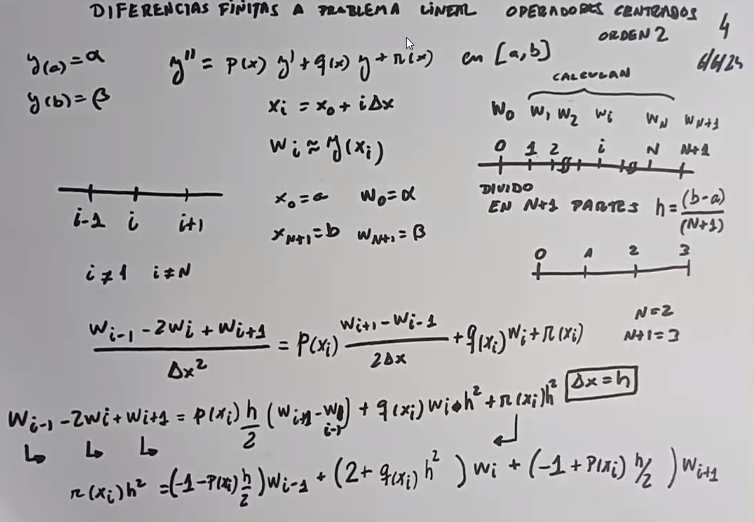 DIFERENCIAS FINITAS A PROBLEMA LINEAL OPERADORES CENTRADOS
ORDEN 2
4
6/6/24
y(a)=α
y(b)=β
y'' = p(x) y' + q(x) y + r(x) en [a,b]
CALCULAN
x_i = x_0 + i Δx
w_i ≈ y(x_i)
W_0 W_1 W_2 W_i W_N W_{N+1}
0 1 2 i N N+1
x_0=a w_0=α
x_{N+1}=b w_{N+1}=β
DIVIDO
EN N+1 PARTES h=(b-a)/(N+1)
i-1 i i+1
i≠1 i≠N
0 1 2 3
N=2
N+1=3
(W_{i-1} - 2W_i + W_{i+1})/Δx² = P(x_i) (W_{i+1} - W_{i-1})/(2Δx) + q(x_i) W_i + r(x_i)
Δx=h
W_{i-1} - 2W_i + W_{i+1} = P(x_i) h/2 (W_{i+1} - W_{i-1}) + q(x_i) W_i h² + r(x_i) h²
r(x_i) h² = (-1-P(x_i) h/2) W_{i-1} + (2+q(x_i) h²) W_i + (-1+P(x_i) h/2) W_{i+1}